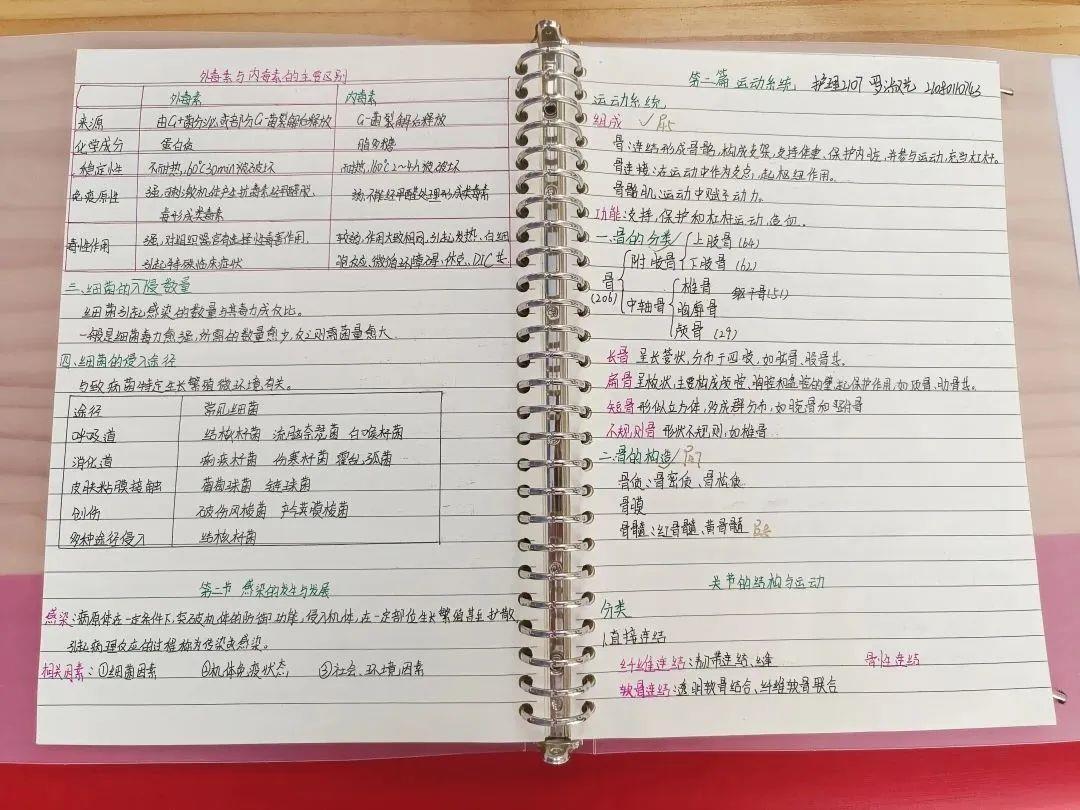 外毒素与内毒素的主要区别
外毒素 内毒素
来源 由G+菌分泌或部分G-菌裂解后释放 G-菌裂解后释放
化学成分 蛋白质 脂多糖
稳定性 不耐热,60℃30min被破坏 耐热,160℃2~4h被破坏
免疫原性 强,可刺激机体产生抗毒素经甲醛脱 弱,不能经甲醛处理形成类毒素
毒形成类毒素
毒性作用 强,对组织器官有选择性毒害作用, 较弱,作用大致相同,引起发热、白细
引起特殊临床症状 胞反应、微循环障碍、休克、DIC等
三、细菌的入侵数量
细菌引起感染的数量与其毒力成反比。
一般是细菌毒力愈强,所需的数量愈少,反之则需菌量愈大.
四、细菌的侵入途径
与致病菌特定生长繁殖微环境有关。
途径 常见细菌
呼吸道 结核杆菌 流脑奈瑟菌 白喉杆菌
消化道 痢疾杆菌 伤寒杆菌 霍乱弧菌
皮肤粘膜接触 葡萄球菌 链球菌
创伤 破伤风梭菌 产气荚膜梭菌
多种途径侵入 结核杆菌
第二节 感染的发生与发展
感染:病原体在一定条件下,突破机体的防御功能,侵入机体,在一定部位生长繁殖甚至扩散
引起病理反应的过程称为传染或感染。
相关因素:①细菌因素 ②机体免疫状态, ③社会、环境因素
第二篇 运动系统 护理2107 罗淑 21080110763
运动系统
组成 ✓ P5
骨:连结形成骨骼,构成支架,支持体重、保护内脏,并参与运动,充当杠杆。
骨连接:在运动中作为支点,起枢纽作用。
骨骼肌:运动中赋予动力。
功能:支持,保护和杠杆运动,造血。
一.骨的分类/ 上肢骨(64)
附肢骨 下肢骨(62)
骨 椎骨 躯干骨(51)
(206) 中轴骨 胸廓骨
颅骨(29)
长骨 呈长管状,分布于四肢,如肱骨、股骨等。
扁骨 呈板状,主要构成颅腔、胸腔和盆腔的壁,起保护作用,如顶骨、肋骨等。
短骨 形似立方体,多成群分布,如腕骨和跗骨
不规则骨 形状不规则,如椎骨
二.骨的构造/ P7
骨质:骨密质、骨松质
骨膜
骨髓:红骨髓、黄骨髓 P8
关节的结构与运动
分类
1.直接连结
纤维连结:韧带连结、缝 骨性连结
软骨连结:透明软骨结合、纤维软骨联合